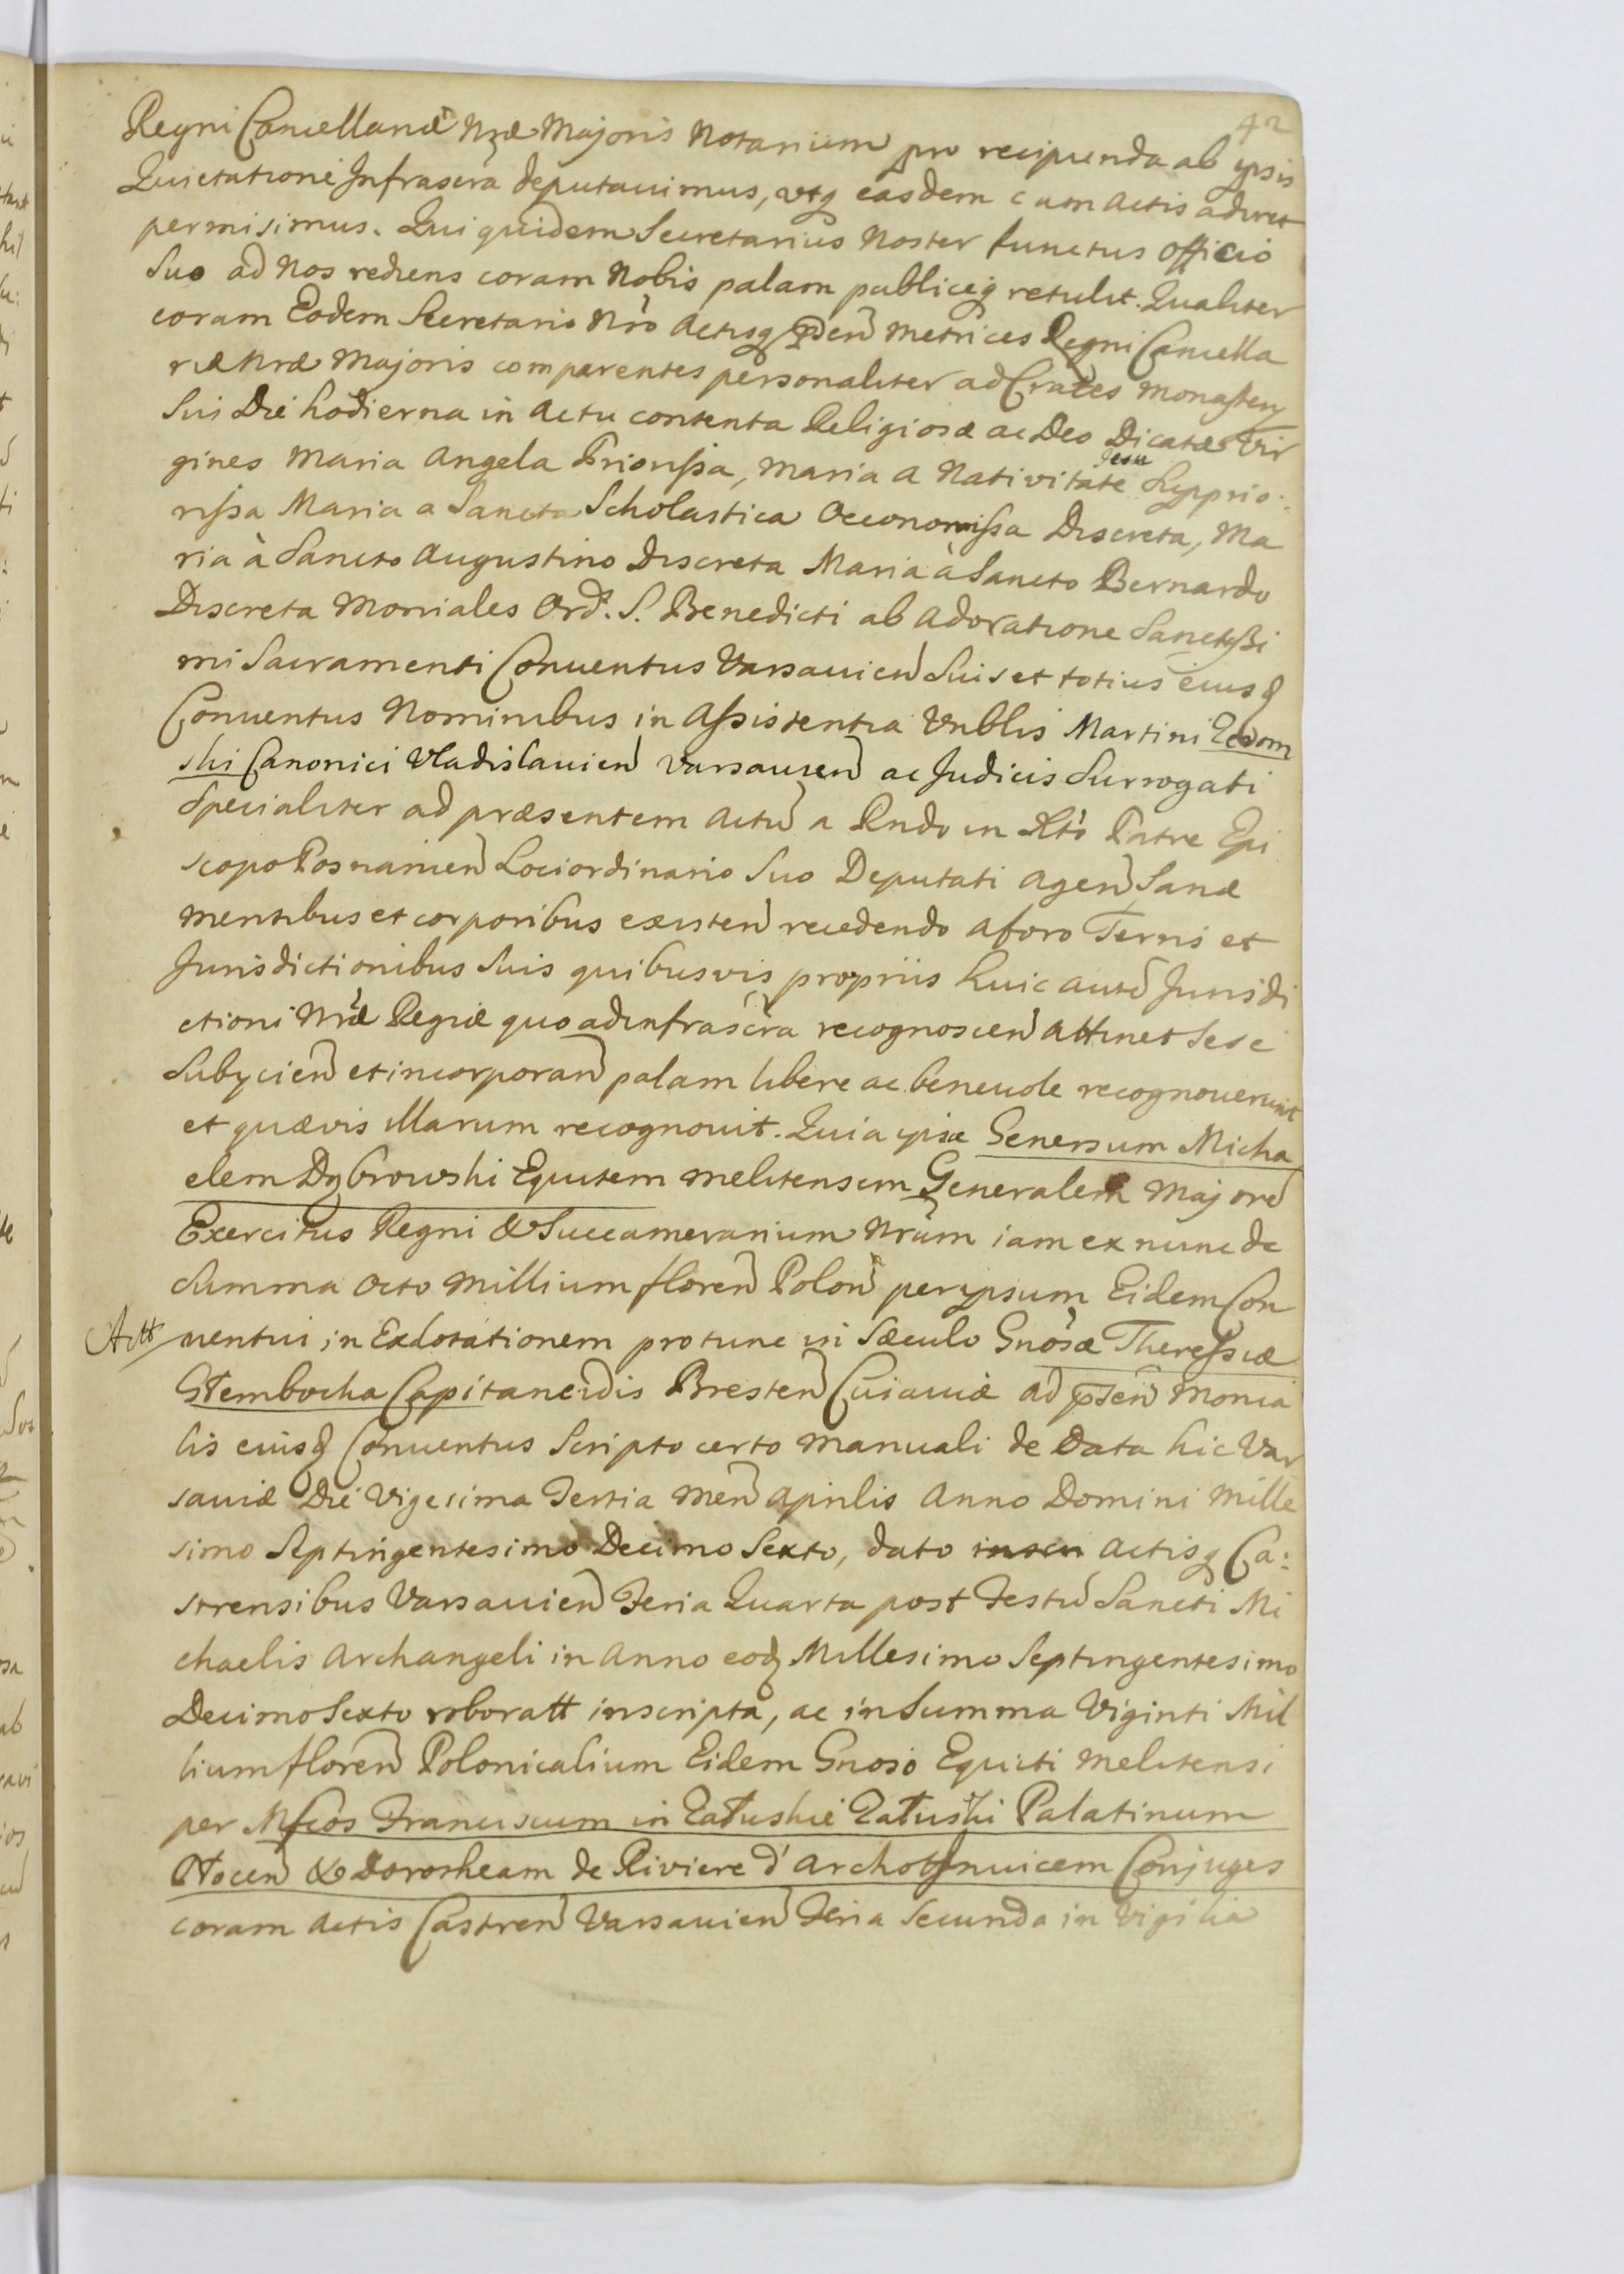 42
Regni Cancellariæ Nræ Majoris Notarium pro recipienda ab ipsis
Quietatione Infrascra deputauimus, vtq easdem cum actis adiret
permisimus. Qui quidem Secretarius Noster functus officio
Suo ad Nos rediens coram Nobis palam publiceq retulit. Qualiter
coram Eodem Secretario Nro Actisq Pden Metrices Regni Cancella
riæ Nræ Majoris comparentes personaliter ad Crates Monastery
Sui Die hodierna in Actu contenta Religiosæ ac Deo Dicatæ Vir
gines Maria Angela Priorissa, Maria a Nativitate Jesu Supprio:
rissa Maria a Sancta Scholastica Oeconomissa Discreta, Ma
ria à Sancto Augustino Discreta Maria à Sancto Bernardo
Discreta Moniales Ord. S. Benedicti ab Adoratione Sanctissi
mi Sacramenti Conuentus Varsauien Suis et totius eiusd
Conuentus Nominibus in Assistentia Vnblis Martini
ski Canonici Vladislauien Varsauien ac Judicis Surrogati
Specialiter ad præsentem Actu a Rndo in Xto Patre Epi
scopo Posnanien Lociordinario Suo Deputati Agen Sanæ
mentibus et corporibus existen recedendo a foro Terris et
Jurisdictionibus Suis quibusvis propriis huic aute Jurisdi
ctioni Nræ Regiæ quo ad infrascra recognoscen attinet Sese
Subycien et incorporan palam libere ac beneuole recognouerunt
et quævis illarum recognouit. Quia ipsæ Generosum Micha
elem Dąbrowski Equitem Melitensem Generalem Majore
Exercitus Regni & Succamerarium Nrum iam ex nunc de
Summa Octo Millium floren Polon per ipsum Eidem Con
Actt uentui in Exdotationem protunc in Sæculo Gnosæ Theressiæ
Stembocka Capitaneidis Bresten Cuiauiæ ad psen Monia
lis eiusd Conuentus Scripto certo manuali de Data hic Var
sauiæ Die Vigesima Tertia Men Aprilis Anno Domini Mille
simo Septingentesimo Decimo Sexto, dato inscri Actisq Ca:
strensibus Varsauien Feria Quarta post Festu Sancti Mi
chaelis Archangeli in Anno eod Millesimo Septingentesimo
Decimo Sexto roboratt inscripta, ac in Summa Viginti Mil
lium floren Polonicalium Eidem Gnoso Equiti Melitensi
per Mfcos Franciscum in Załuskie Załuski Palatinum
Płocen & Dorotheam de Riviere d'Archot Inuicem Conjuges
coram Actis Castren Varsauien Feria Secunda in Vigilia